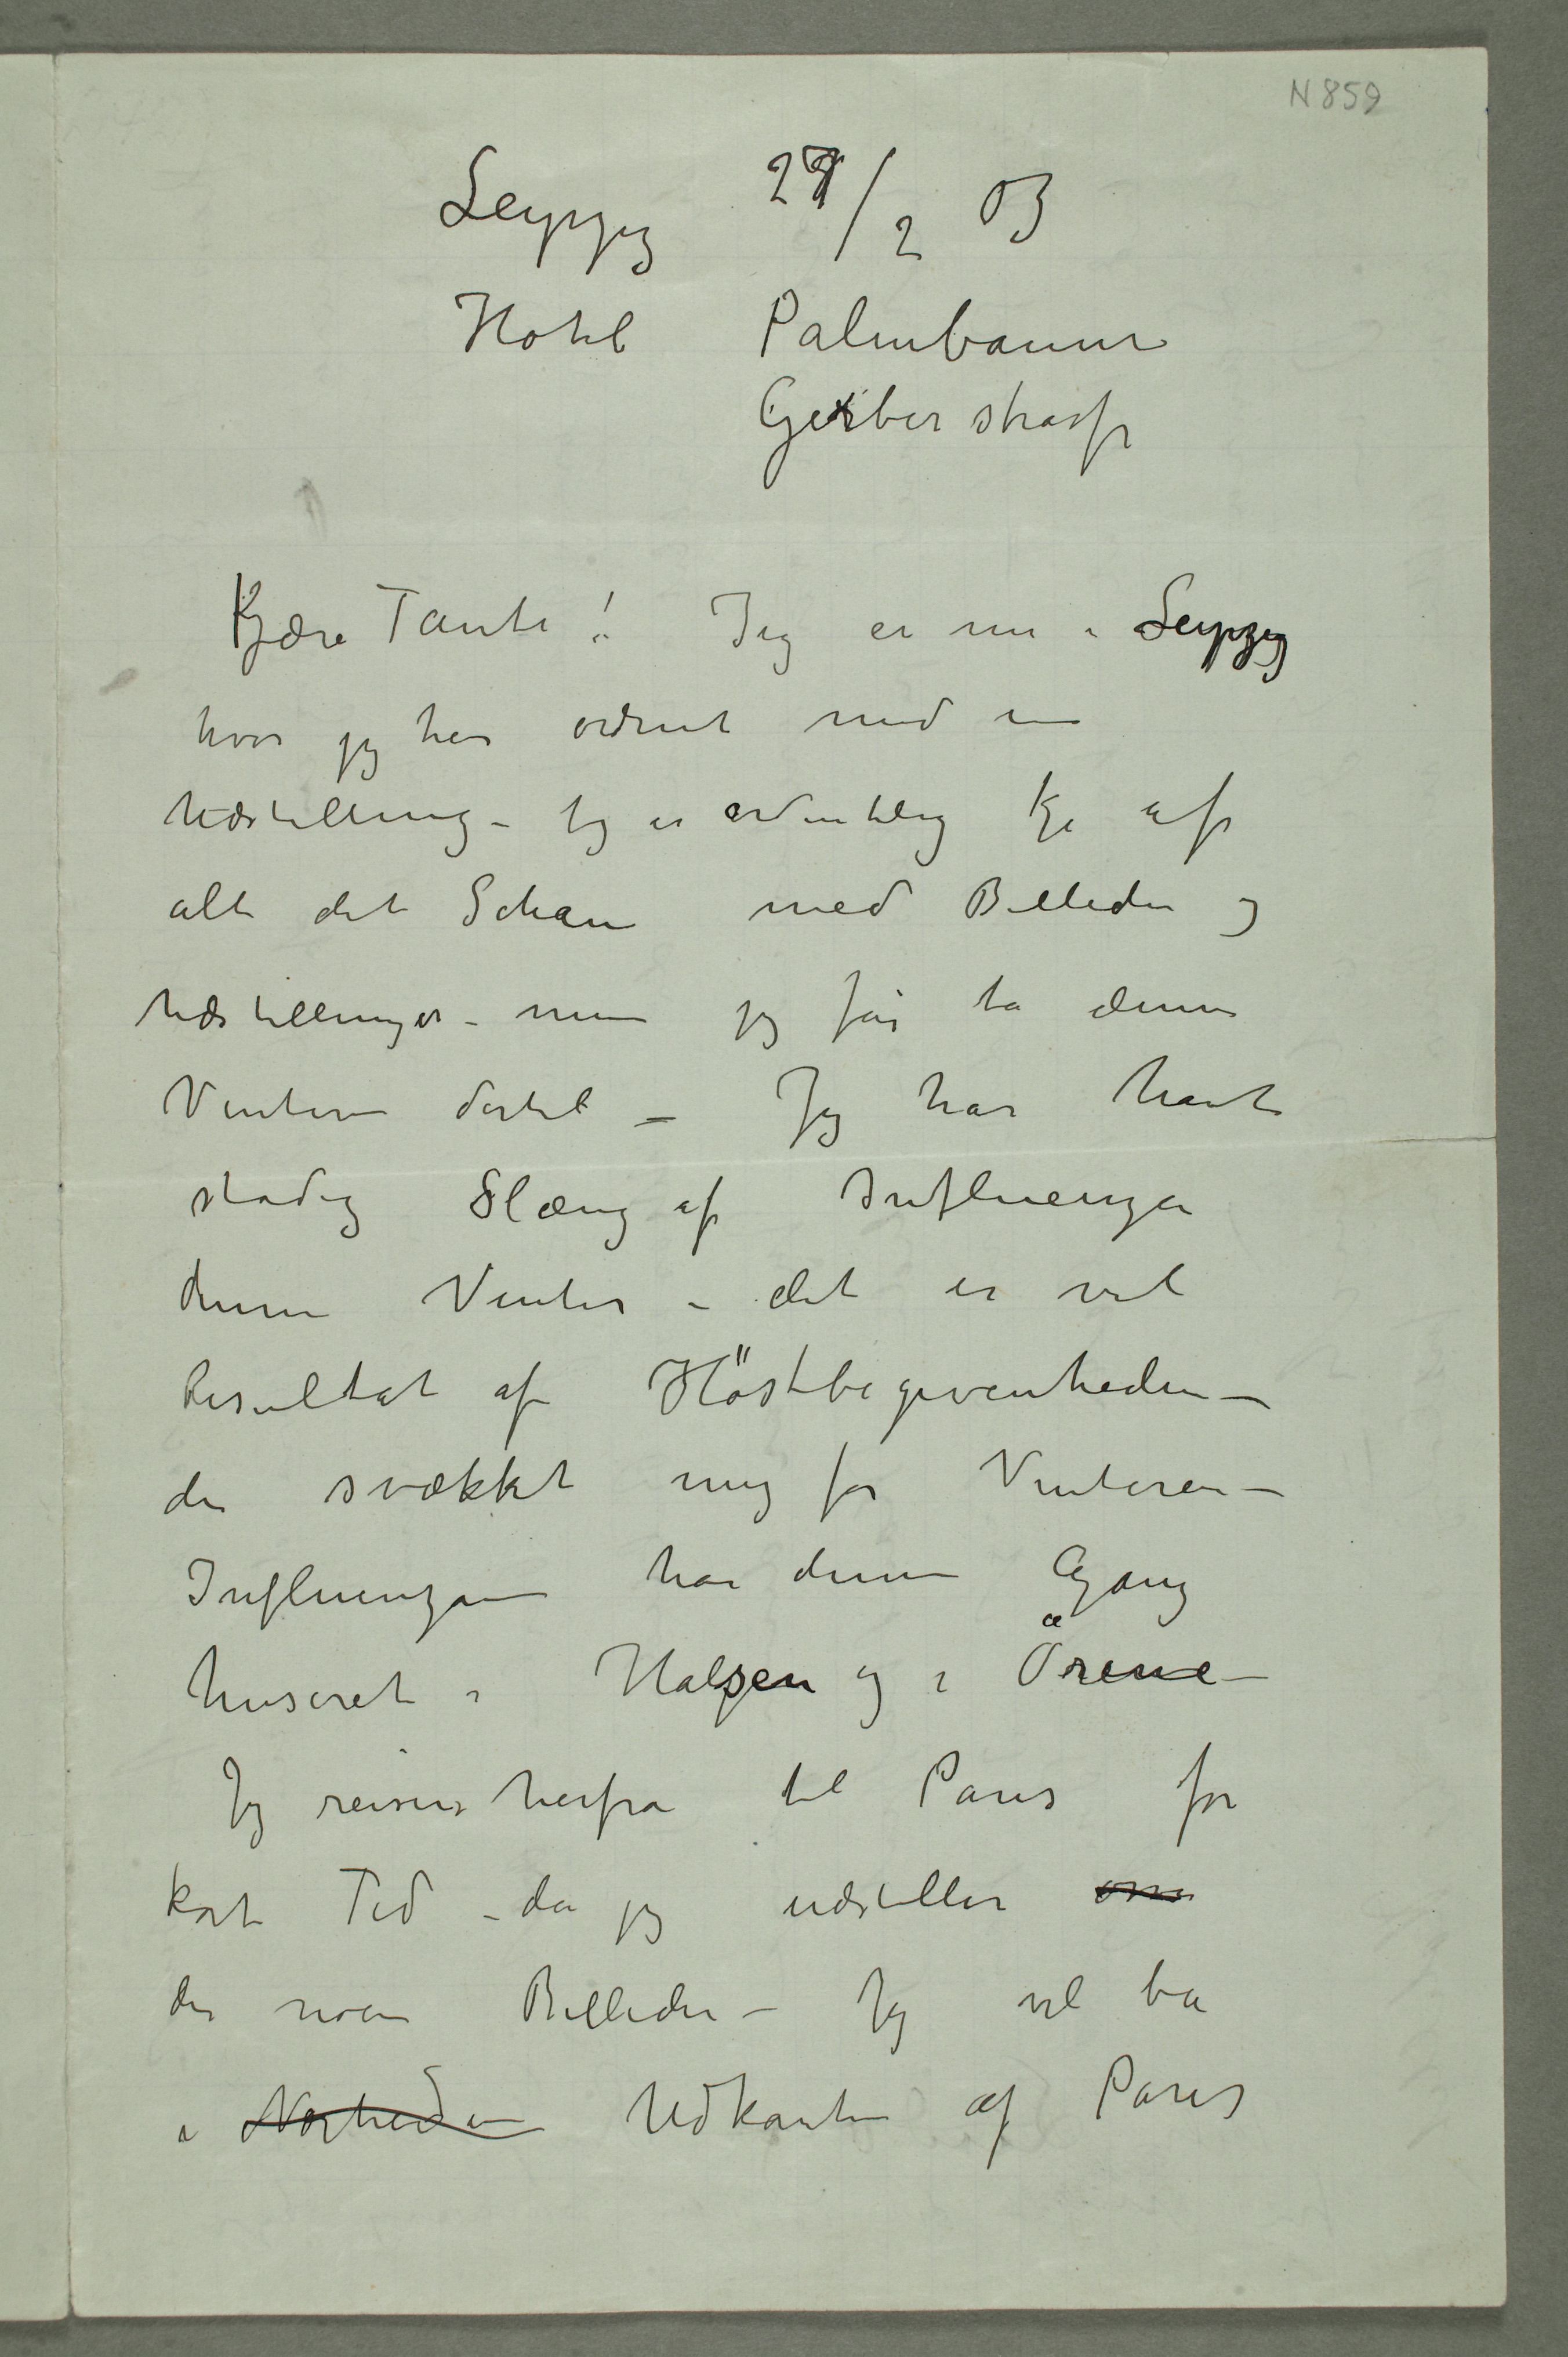 N 859
Leipzig 27/2 03
Hotel Palmbaum
Gerber strasse
Kjære Tante! Jeg er nu i Leipzig
hvor jeg har ordnet med en
Udstilling – Jeg er ordentlig kje af
alt det Schau med Billeder og
Udstillinger – men jeg får ta denne
Vinteren dertil – Jeg har havt
stadig Slæng af Influenza
denne Vinter – det er vel
Resultat af Höstbegivenheden –
der svækket mig for Vinteren –
Influenzaen har denne Gang
huseret i Halsen og i Ørene –
Jeg reiser herfra til Paris for
kort Tid – da jeg udstiller om
der noen Billeder – Jeg vil bo
i Nærheden Udkanten af Paris